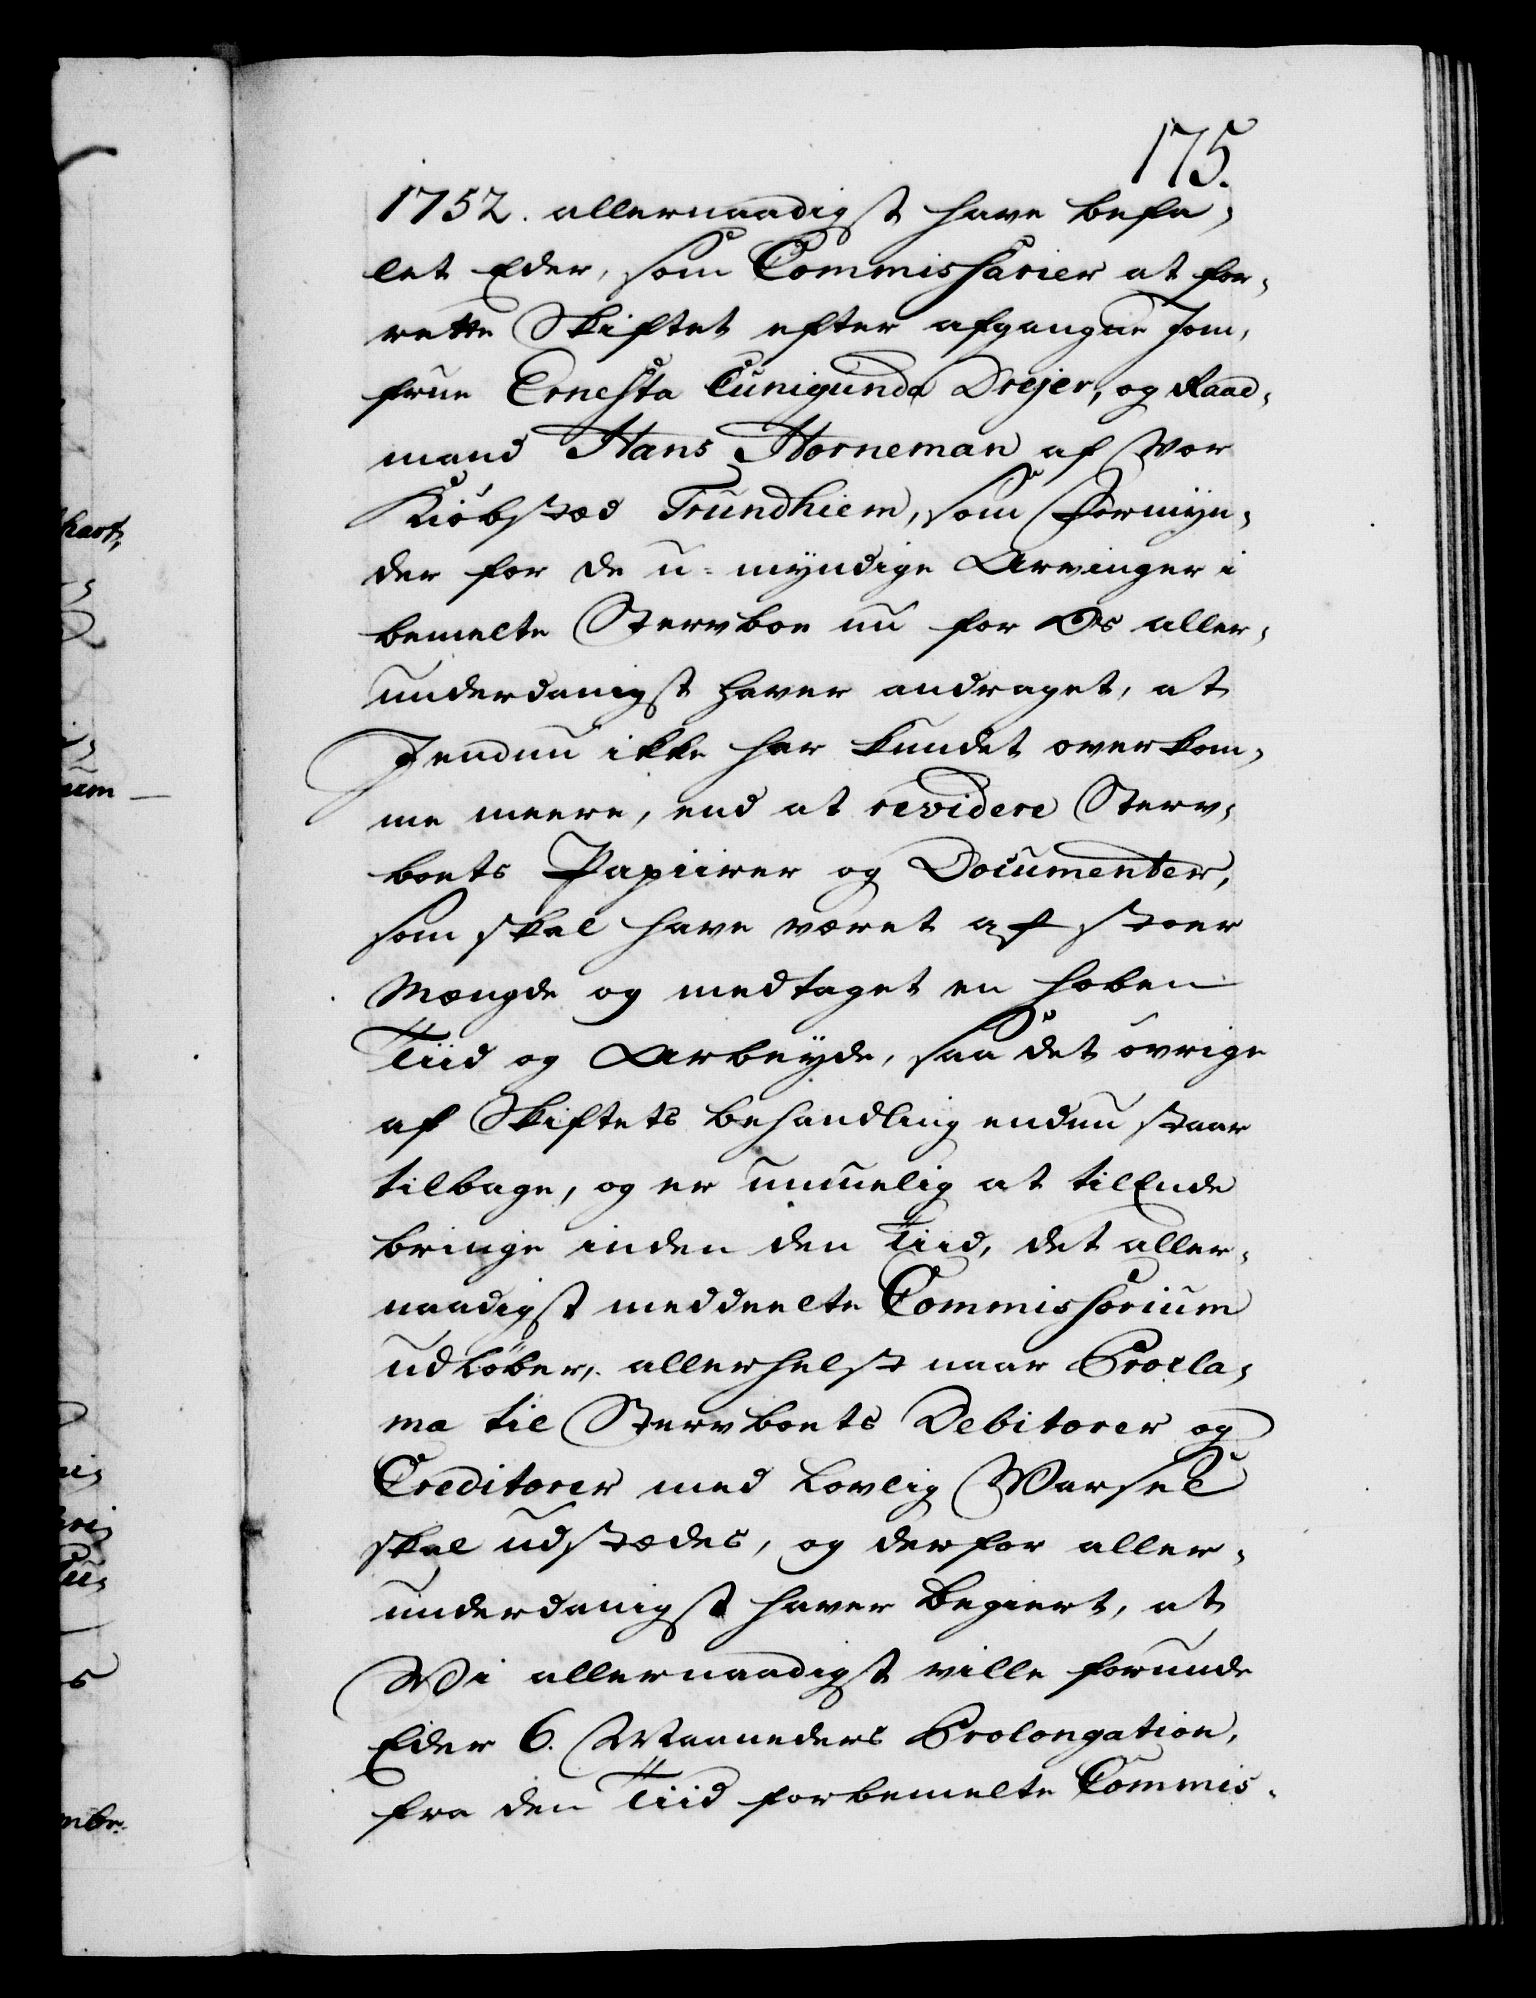 175.
1752. allernaadigst have befa-
let Eder, som Commissarier at for-
rette Skiftet efter afgangne Jom-
frue Ernesta Cunigunda Drejer, og Raad-
mand Hans Horneman af Vor
Kiöbstæd Trundhiem, som Formyn-
der for de u-myndige Arvinger i
bemelte Stervboe nu for Os aller-
underdanigst haver andraget, at
J endnu ikke har kundet overkom-
me meere, end at revidere Sterv-
boets Papiirer og Documenter,
som skal have været af stoer
Mængde og medtaget en hoben
Tiid og Arbeyde, saa det övrige
af Skiftets behandling endnu staar
tilbage, og er umuelig at tilEnde
bringe inden den Tiid, det aller-
naadigst meddeelte Commissorium
udlöber, allerhelst naar Procla-
ma til Stervboets Debitorer og
Creditorer med Lovlig Varsel
skal udstædes, og derfor aller-
underdanigst haver begiert, at
Wi allernaadigst ville forunde
Eder 6. Maaneders Prolongation,
fra den Tiid forbemelte Commis-